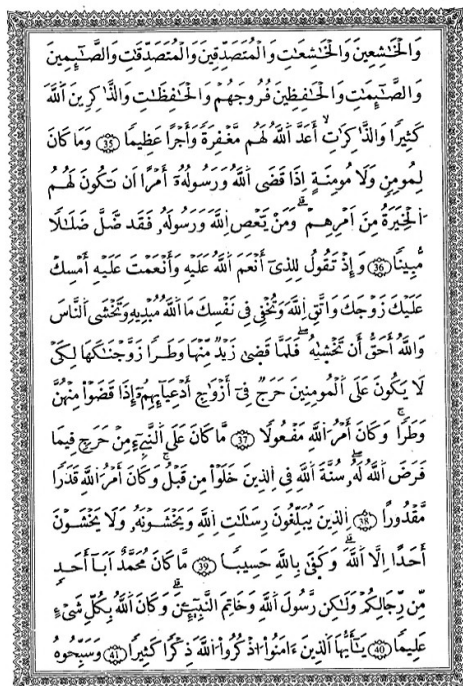 وَالْخَٰشِعِينَ وَالْخَٰشِعَٰتِ وَالْمُتَصَدِّقِينَ وَالْمُتَصَدِّقَٰتِ وَالصَّٰٓئِمِينَ
وَالصَّٰٓئِمَٰتِ وَالْحَٰفِظِينَ فُرُوجَهُمْ وَالْحَٰفِظَٰتِ وَالذَّٰكِرِينَ اَللَّهَ
كَثِيرٗا وَالذَّٰكِرَٰتِ أَعَدَّ اَللَّهُ لَهُم مَّغْفِرَةٗ وَأَجْرًا عَظِيمٗا 35 وَمَا كَانَ
لِمُومِنٖ وَلَا مُومِنَةٍ اِذَا قَضَى اَللَّهُ وَرَسُولُهُۥٓ أَمْرًا اَن تَكُونَ لَهُمُ
اُ۬لْخِيَرَةُ مِنَ اَمْرِهِمْۖ وَمَنْ يَّعْصِ اِللَّهَ وَرَسُولَهُۥ فَقَد ضَّلَّ ضَلَٰلٗا
مُّبِينٗا 36 وَإِذْ تَقُولُ لِلذِےٓ أَنْعَمَ اَللَّهُ عَلَيْهِ وَأَنْعَمْتَ عَلَيْهِ أَمْسِكْ
عَلَيْكَ زَوْجَكَ وَاتَّقِ اِللَّهَ وَتُخْفِے فِے نَفْسِكَ مَا اَللَّهُ مُبْدِيهِ وَتَخْشَى اَلنَّاسَ
وَاللَّهُ أَحَقُّ أَن تَخْشَىٰهُۖ فَلَمَّا قَضَىٰ زَيْدٞ مِّنْهَا وَطَرٗا زَوَّجْنَٰكَهَا لِكَےْ
لَا يَكُونَ عَلَى اَلْمُومِنِينَ حَرَجٞ فِےٓ أَزْوَٰجِ أَدْعِيَآئِهِمُۥٓ إِذَا قَضَوْاْ مِنْهُنَّ
وَطَرٗاۖ وَكَانَ أَمْرُ اُللَّهِ مَفْعُولٗا 37 مَّا كَانَ عَلَى اَلنَّبِےٓءِ مِنْ حَرَجٖ فِيمَا
فَرَضَ اَللَّهُ لَهُۥۖ سُنَّةَ اَللَّهِ فِے اِلذِينَ خَلَوْاْ مِن قَبْلُۖ وَكَانَ أَمْرُ اُللَّهِ قَدَرٗا
مَّقْدُورًا 38 اِلذِينَ يُبَلِّغُونَ رِسَٰلَٰتِ اِللَّهِ وَيَخْشَوْنَهُۥ وَلَا يَخْشَوْنَ
أَحَدًا اِلَّا اَللَّهَۖ وَكَفَىٰ بِاللَّهِ حَسِيبٗا 39 مَّا كَانَ مُحَمَّدٌ اَبَآ أَحَدٖ
مِّن رِّجَالِكُمْ وَلَٰكِن رَّسُولَ اَللَّهِ وَخَاتِمَ اَلنَّبِيٓـِٕينَۖ وَكَانَ اَللَّهُ بِكُلِّ شَےْءٍ
عَلِيمٗا 40 يَٰٓأَيُّهَا اَلذِينَ ءَامَنُواْ اُ۟ذْكُرُواْ اُللَّهَ ذِكْرٗا كَثِيرٗا 41 وَسَبِّحُوهُ